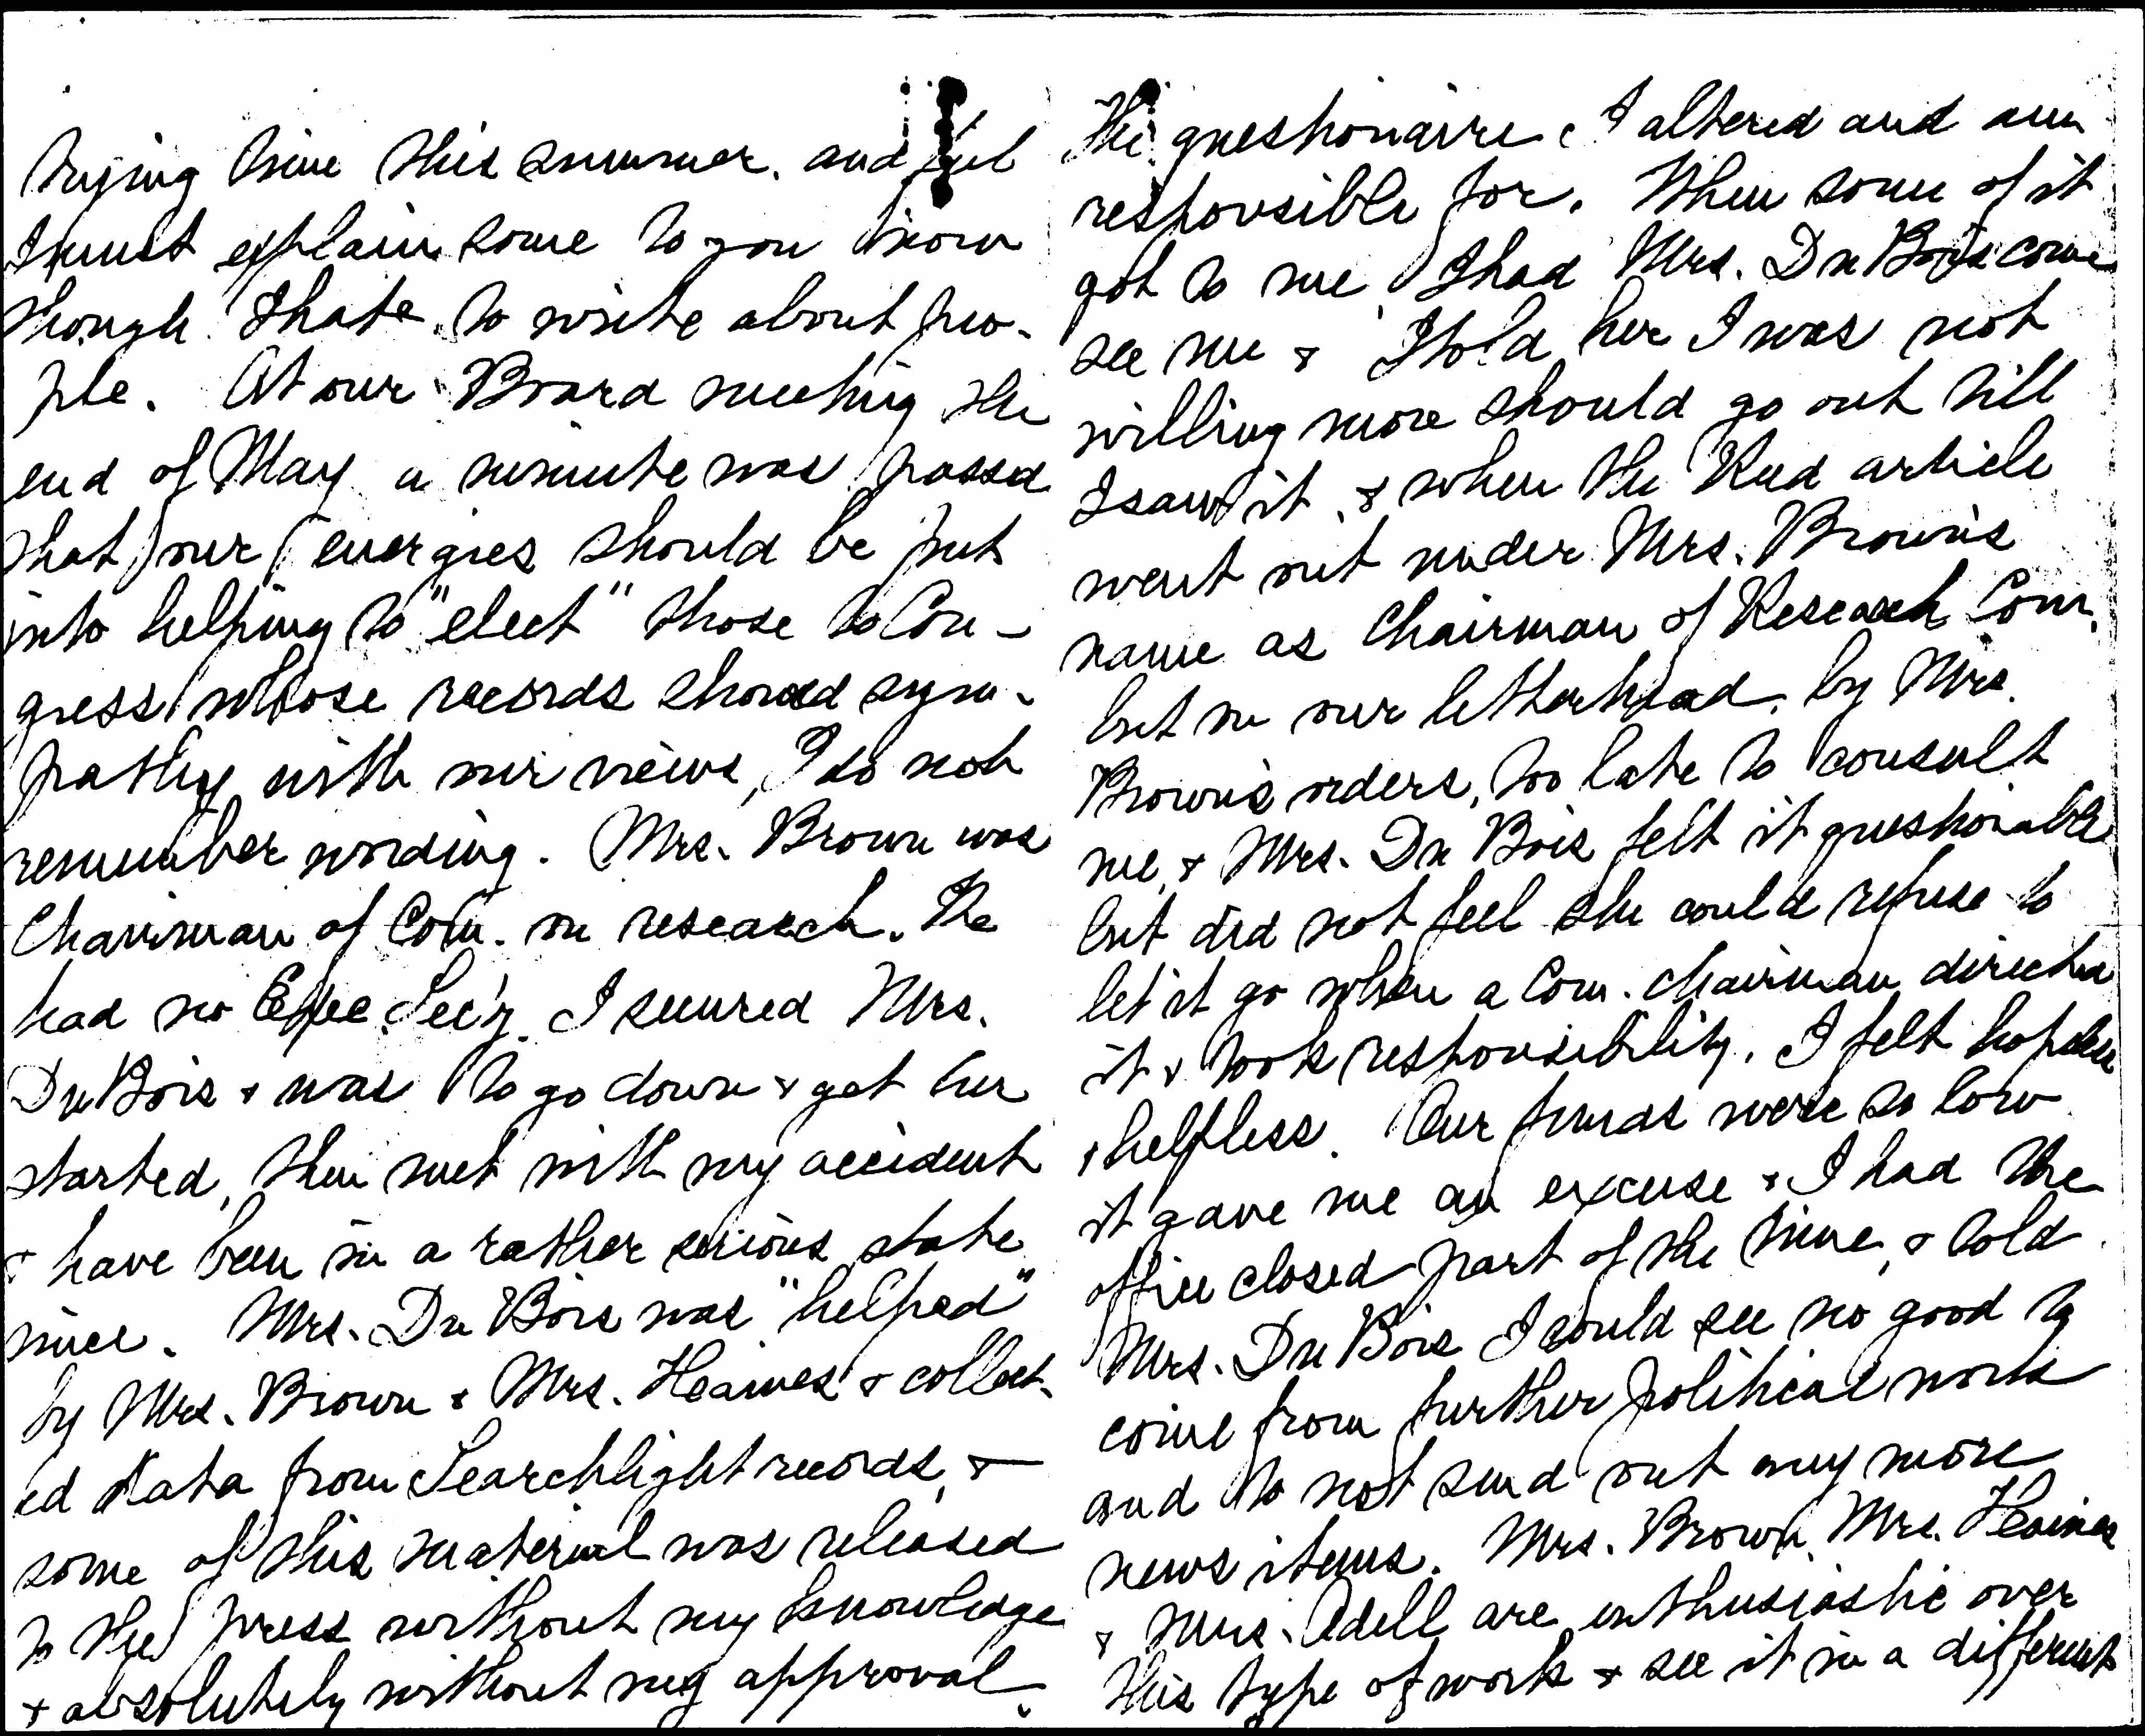 trying time this summer, and feel
I must explain some to you now
though I hate to write about peo-
ple. At our Board meeting the
end of May a minute was passed
that our energies should be put
into helping to "elect" those to Con-
gress whose records showed sym-
pathy with our views, I do not
remember wording. Mrs. Brown was
Chairman of Com. on research. We
had no Exec. Sec'y. I secured Mrs.
Du Bois & was to go down & get her
started, then met with my accident
& have been in a rather serious state
since. Mrs. Du Bois was "helped"
by Mrs. Brown & Mrs. Heaines & collect-
ed data from Searchlight records, &
some of this material was released
to the press without my knowledge
& absolutely without my approval.
The questionaire I altered and am
responsible for. When some of it
got to me I had Mrs. Du Bois come
see me & I told her I was not
willing more should go out till
I saw it, & when the Reed article
went out under Mrs. Brown's
name as Chairman of Research Com.
but on our letterhead, by Mrs.
Brown's orders, too late to consult
me, & Mrs. Du Bois felt it questionable
but did not feel she could refuse to
let it go when a Com. Chairman directed
it & took responsibility. I felt hopeless
& helpless. Our funds were so low
it gave me an excuse & I had the
office closed part of the time, & told
Mrs. Du Bois I could see no good to
come from further political work
and to not send out any more
news items. Mrs. Brown, Mrs. Heaines
& Mrs. Odell are enthusiastic over
this type of work & see it in a different